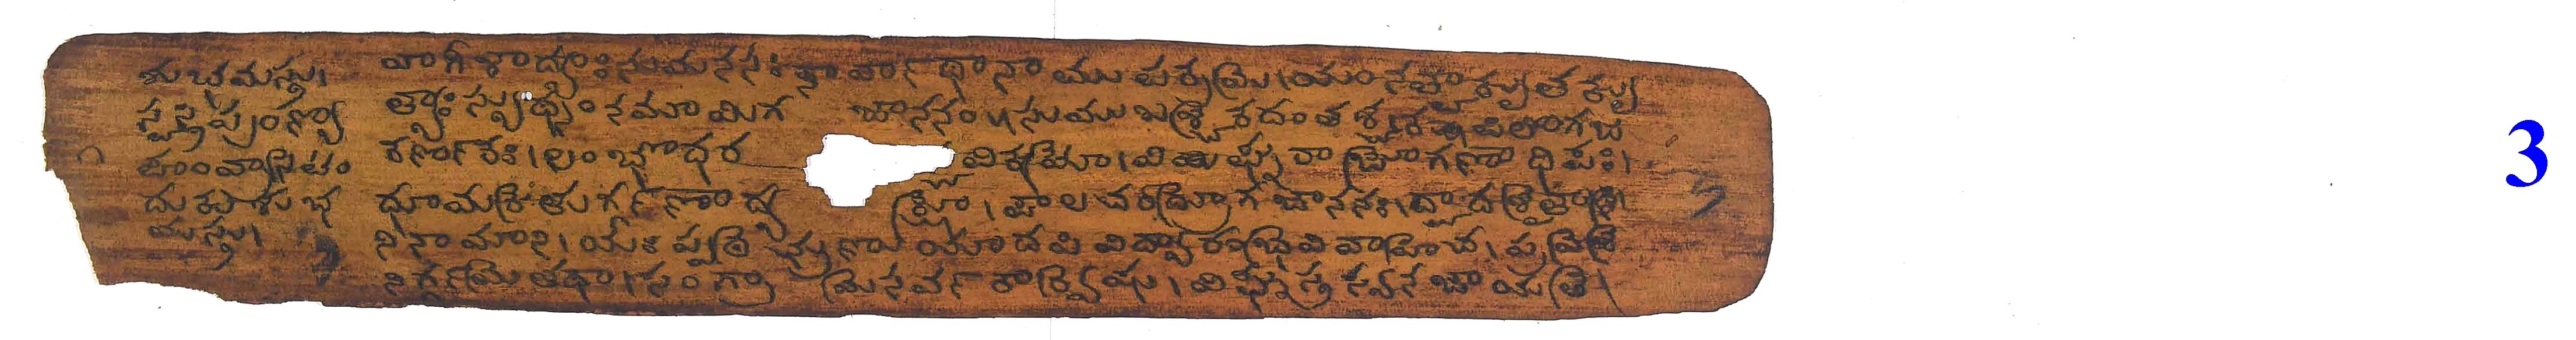 శుభమస్తు।
దుకుశుభ
మస్తు।
వాగీశాద్యాః సుమనసః సర్వార్థానాముపక్రమే।యం నత్వా కృతకృ
త్యాః స్యుస్తం నమామి గజాననం॥సుముఖశ్చైకదంతశ్చ కపిలో గజ
కర్ణకః।లంబోదర వికటో।విఘ్నరాజో గణాధిపః।
ధూమకేతుర్గణాధ్యక్షో।ఫాలచంద్రో గజాననః।ద్వాదశైతా
ని నామాని।యః పఠేచ్ఛృణుయాదపి విద్యారంభే వివాహేచ।ప్రవేశే
నిర్గమే తథా।సంగ్రామే సర్వకార్యేషు।విఘ్నస్తస్య నజాయతే।
3